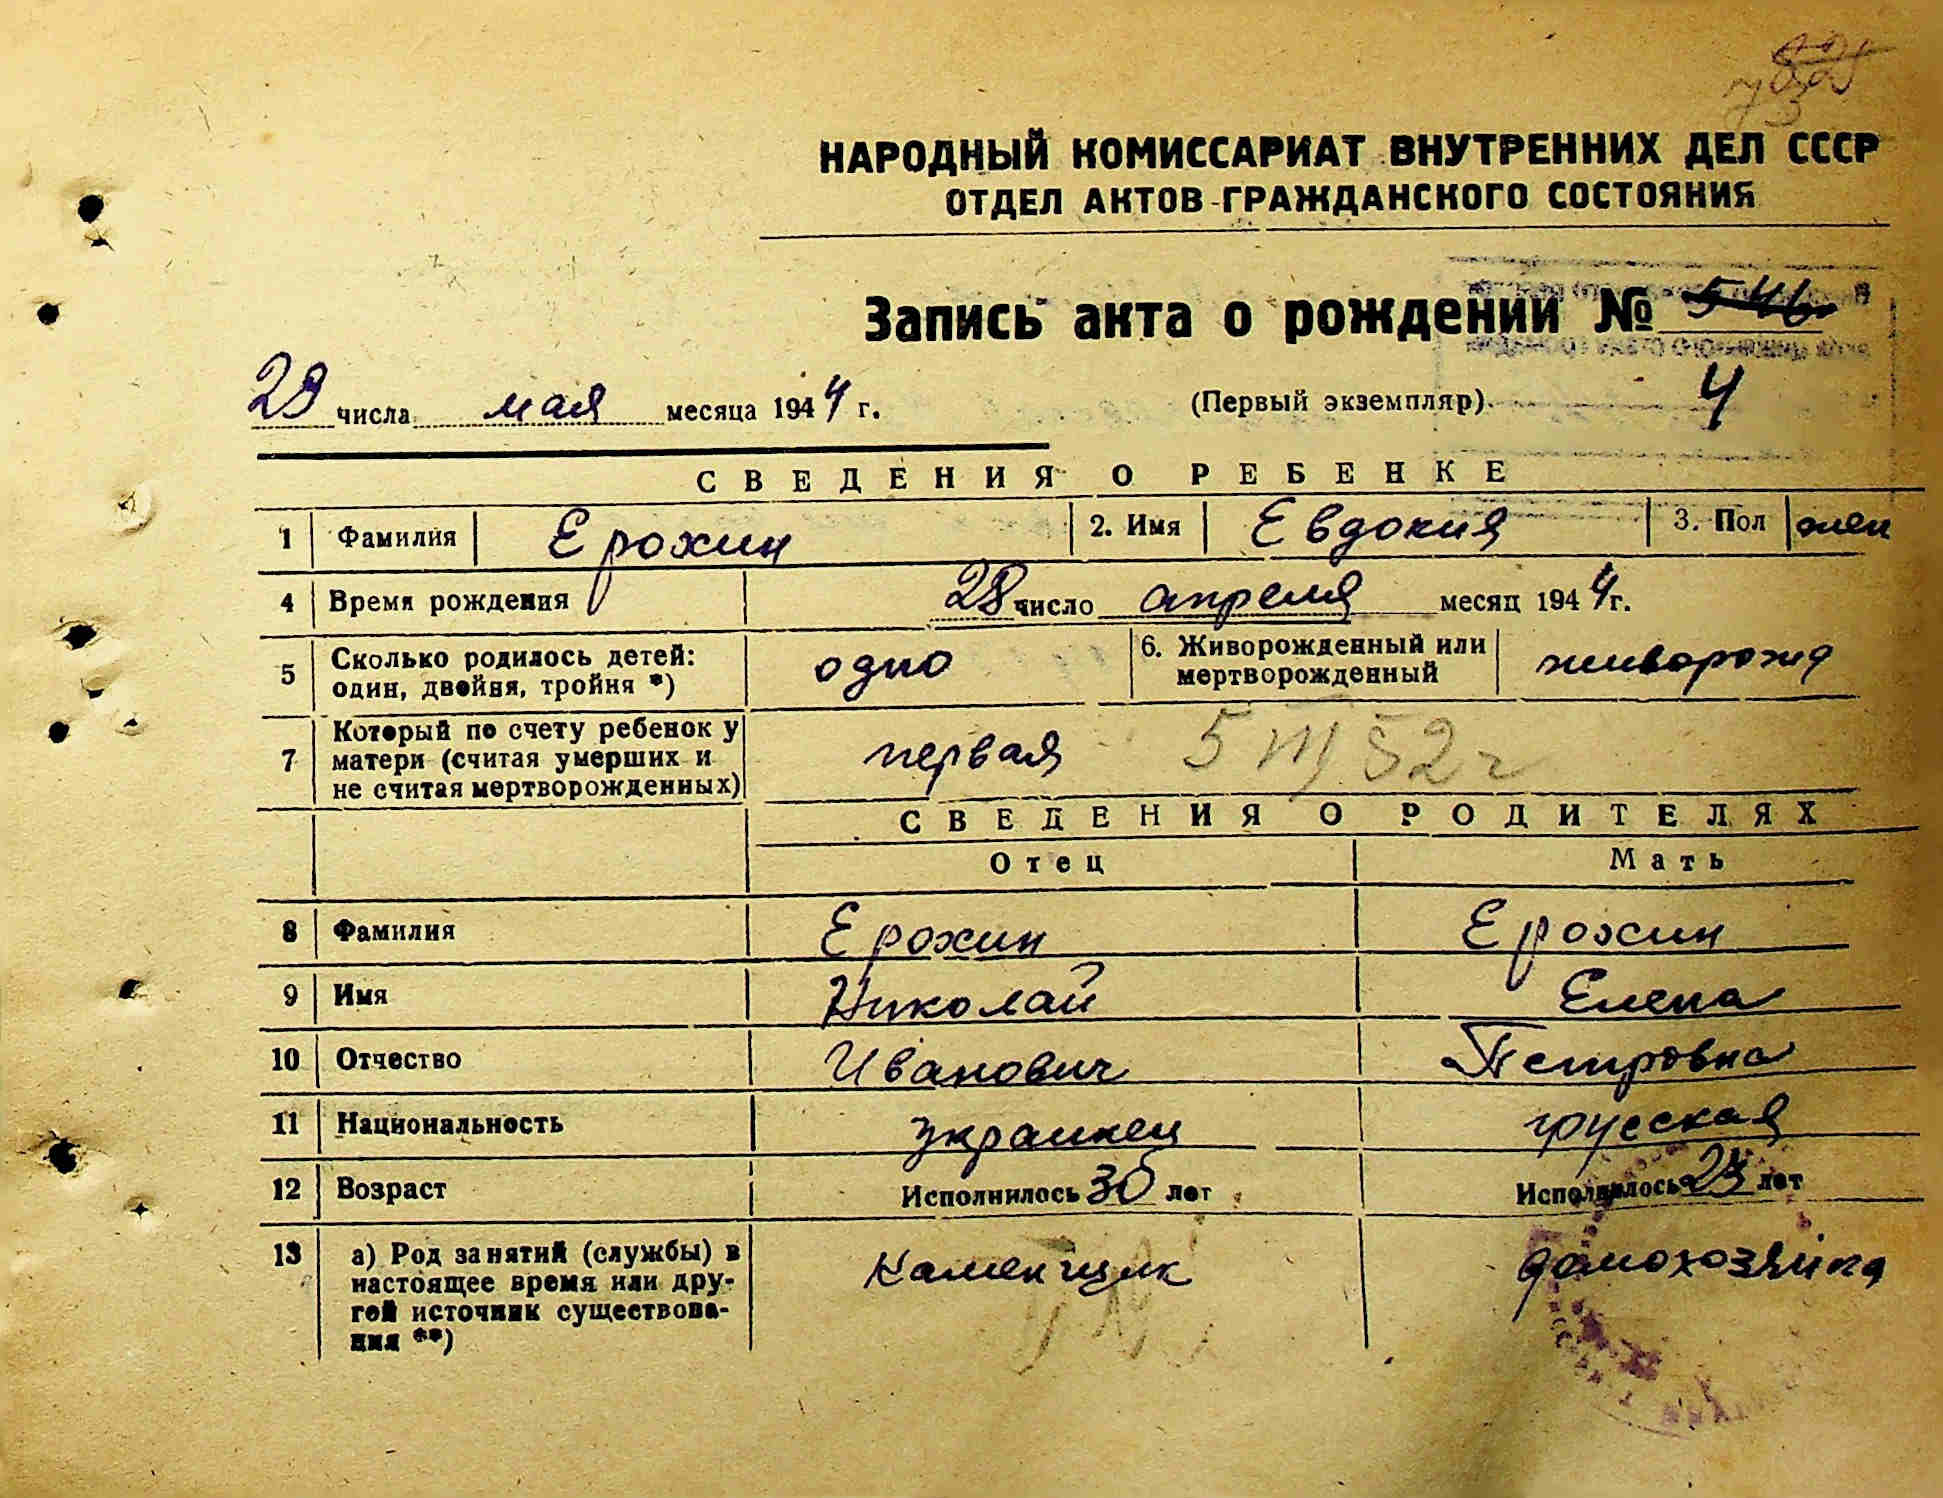 НАРОДНЫЙ КОМИССАРИАТ ВНУТРЕННИХ ДЕЛ СССР
ОТДЕЛ АКТОВ ГРАЖДАНСКОГО СОСТОЯНИЯ
Запись акта о рождении № 546
29 числа мая месяца 1944 г. (Первый экземпляр) 4
СВЕДЕНИЯ О РЕБЕНКЕ
1 Фамилия Ерохин 2. Имя Евдокия 3. Пол жен
4 Время рождения 28 число апреля месяц 1944 г.
5 Сколько родилось детей: один, двойня, тройня *) одно 6. Живорожденный или мертворожденный живорожд
7 Который по счету ребенок у матери (считая умерших и не считая мертворожденных) первая 5 III 52 г
СВЕДЕНИЯ О РОДИТЕЛЯХ
Отец Мать
8 Фамилия Ерохин Ерохин
9 Имя Николай Елена
10 Отчество Иванович Петровна
11 Национальность украинец русская
12 Возраст Исполнилось 30 лет Исполнилось 23 лет
13 а) Род занятий (службы) в настоящее время или другой источник существования **) Каменщик домохозяйка